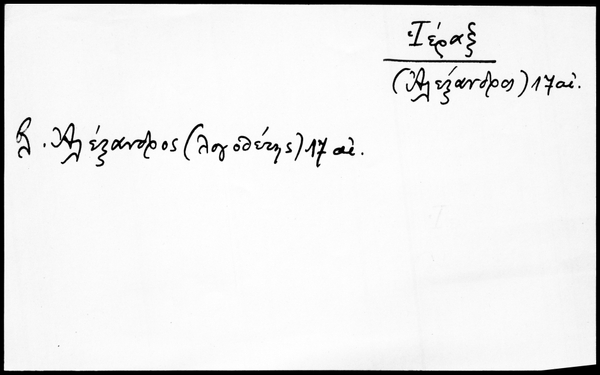 Ἱέραξ
(Ἀλέξανδρος) 17 αἰ.
βλ. Ἀλέξανδρος (λογοθέτης) 17 αἰ.